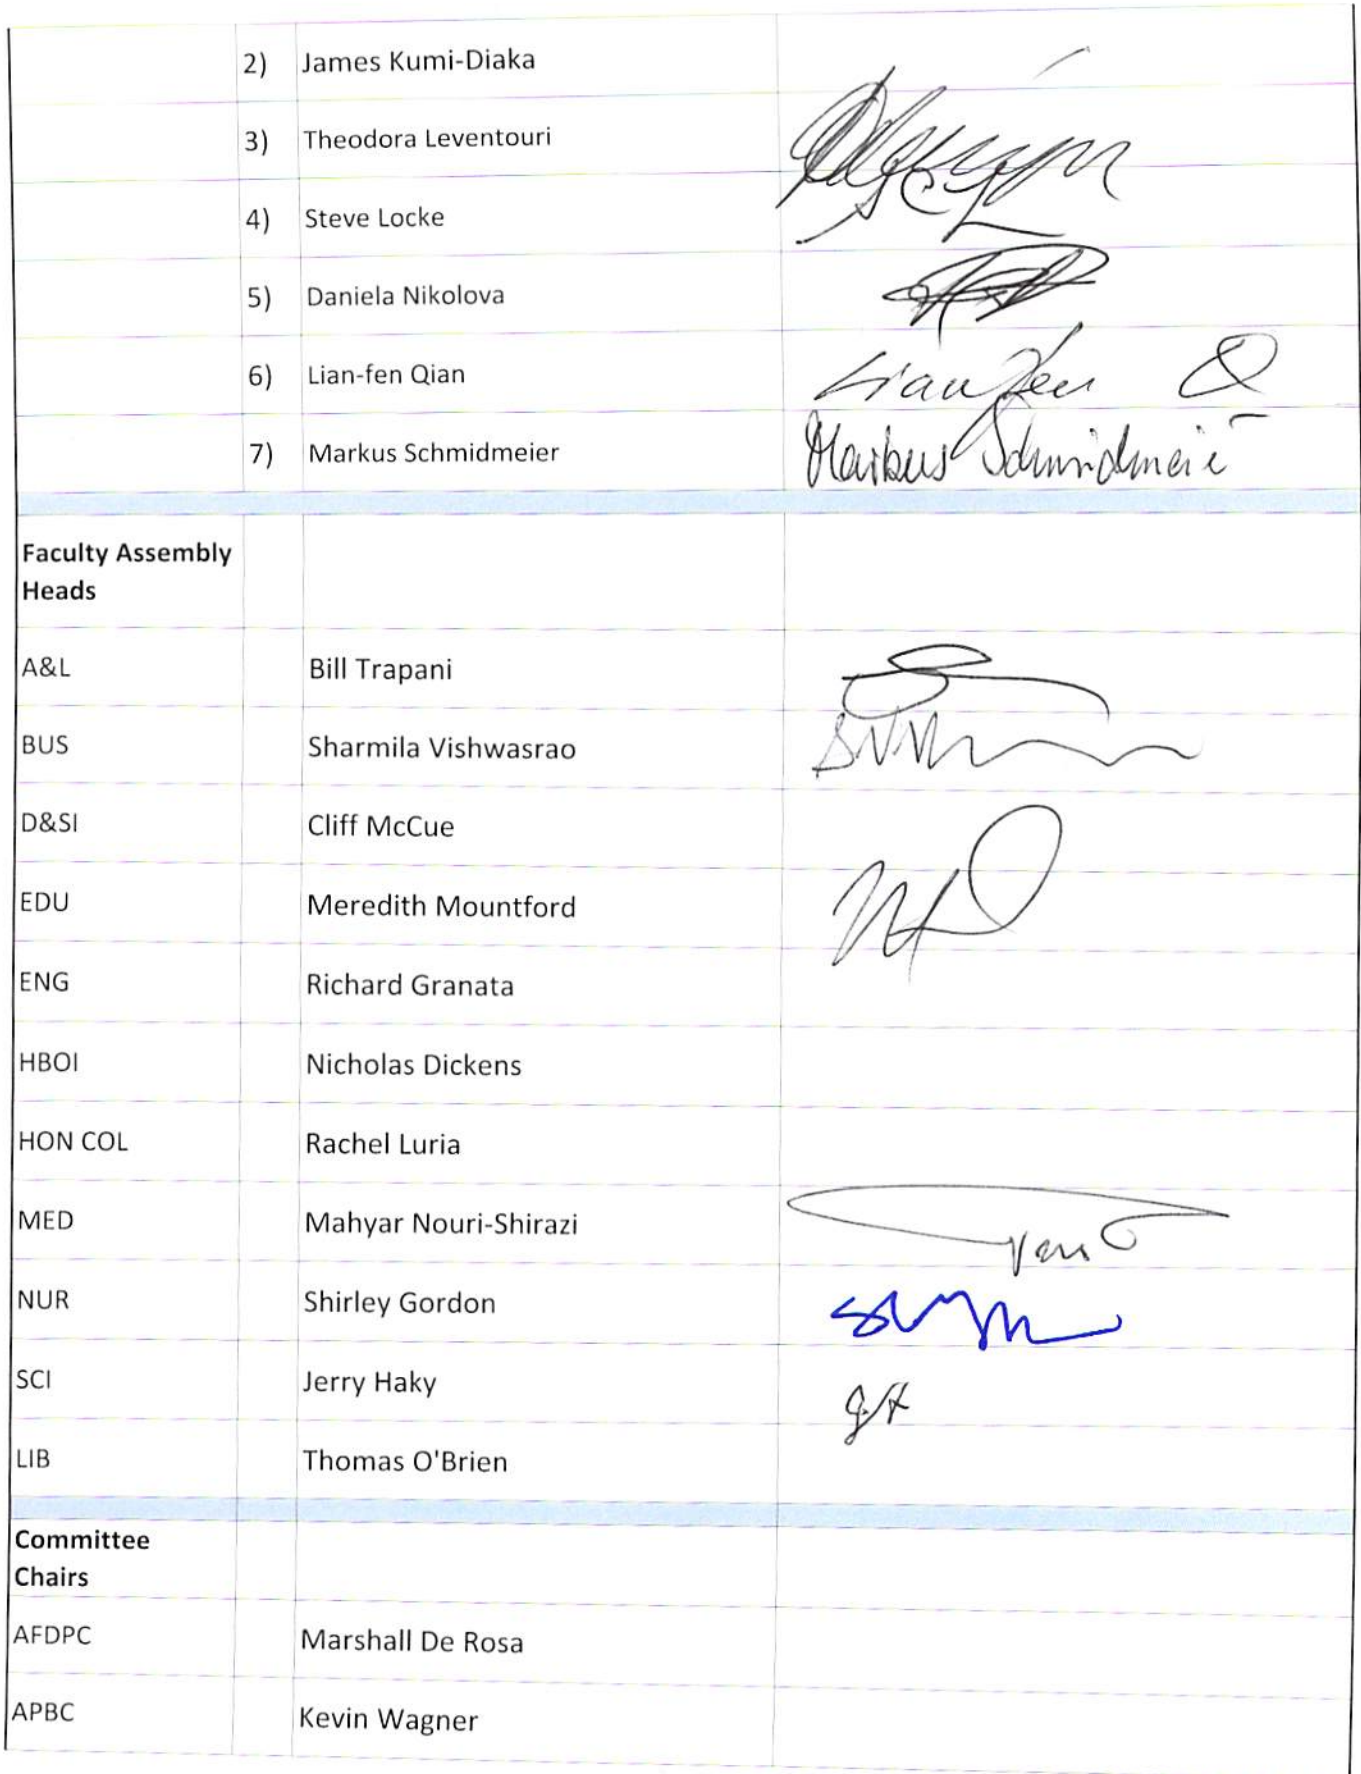 2) James Kumi-Diaka
3) Theodora Leventouri
4) Steve Locke
5) Daniela Nikolova
6) Lian-fen Qian Lian Fen Q
7) Markus Schmidmeier Markus Schmidmeier
Faculty Assembly
Heads
A&L Bill Trapani
BUS Sharmila Vishwasrao
D&SI Cliff McCue
EDU Meredith Mountford
ENG Richard Granata
HBOI Nicholas Dickens
HON COL Rachel Luria
MED Mahyar Nouri-Shirazi
NUR Shirley Gordon
SCI Jerry Haky
LIB Thomas O'Brien
Committee
Chairs
AFDPC Marshall De Rosa
APBC Kevin Wagner